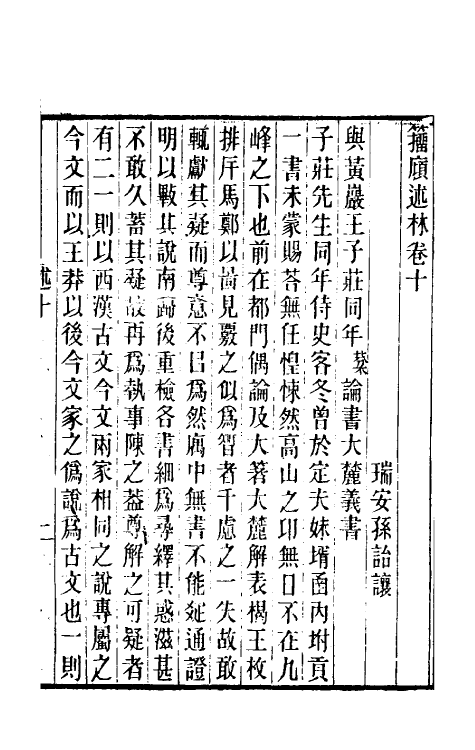 籀廎述林卷十
瑞安孫詒讓
與黃巖王子莊同年棻論書大麓義書
子莊先生同年侍史客冬曾於定夫妹壻函內坿貢
一書未蒙賜荅無任惶悚然高山之卬無日不在九
峰之下也前在都門偶論及大著大麓解表楬王枚
排斥馬鄭以啚見覈之似爲智者千慮之一失故敢
輒獻其疑而尊意不㠯爲然寓中無書不能延通證
明以斀其說南歸後重檢各書細爲尋繹其惑滋甚
不敢久蓄其疑故再爲執事陳之葢尊解之可疑者
有二一則以西漢古文今文兩家相同之說專屬之
今文而以王莽以後今文家之僞說爲古文也一則
述十
一